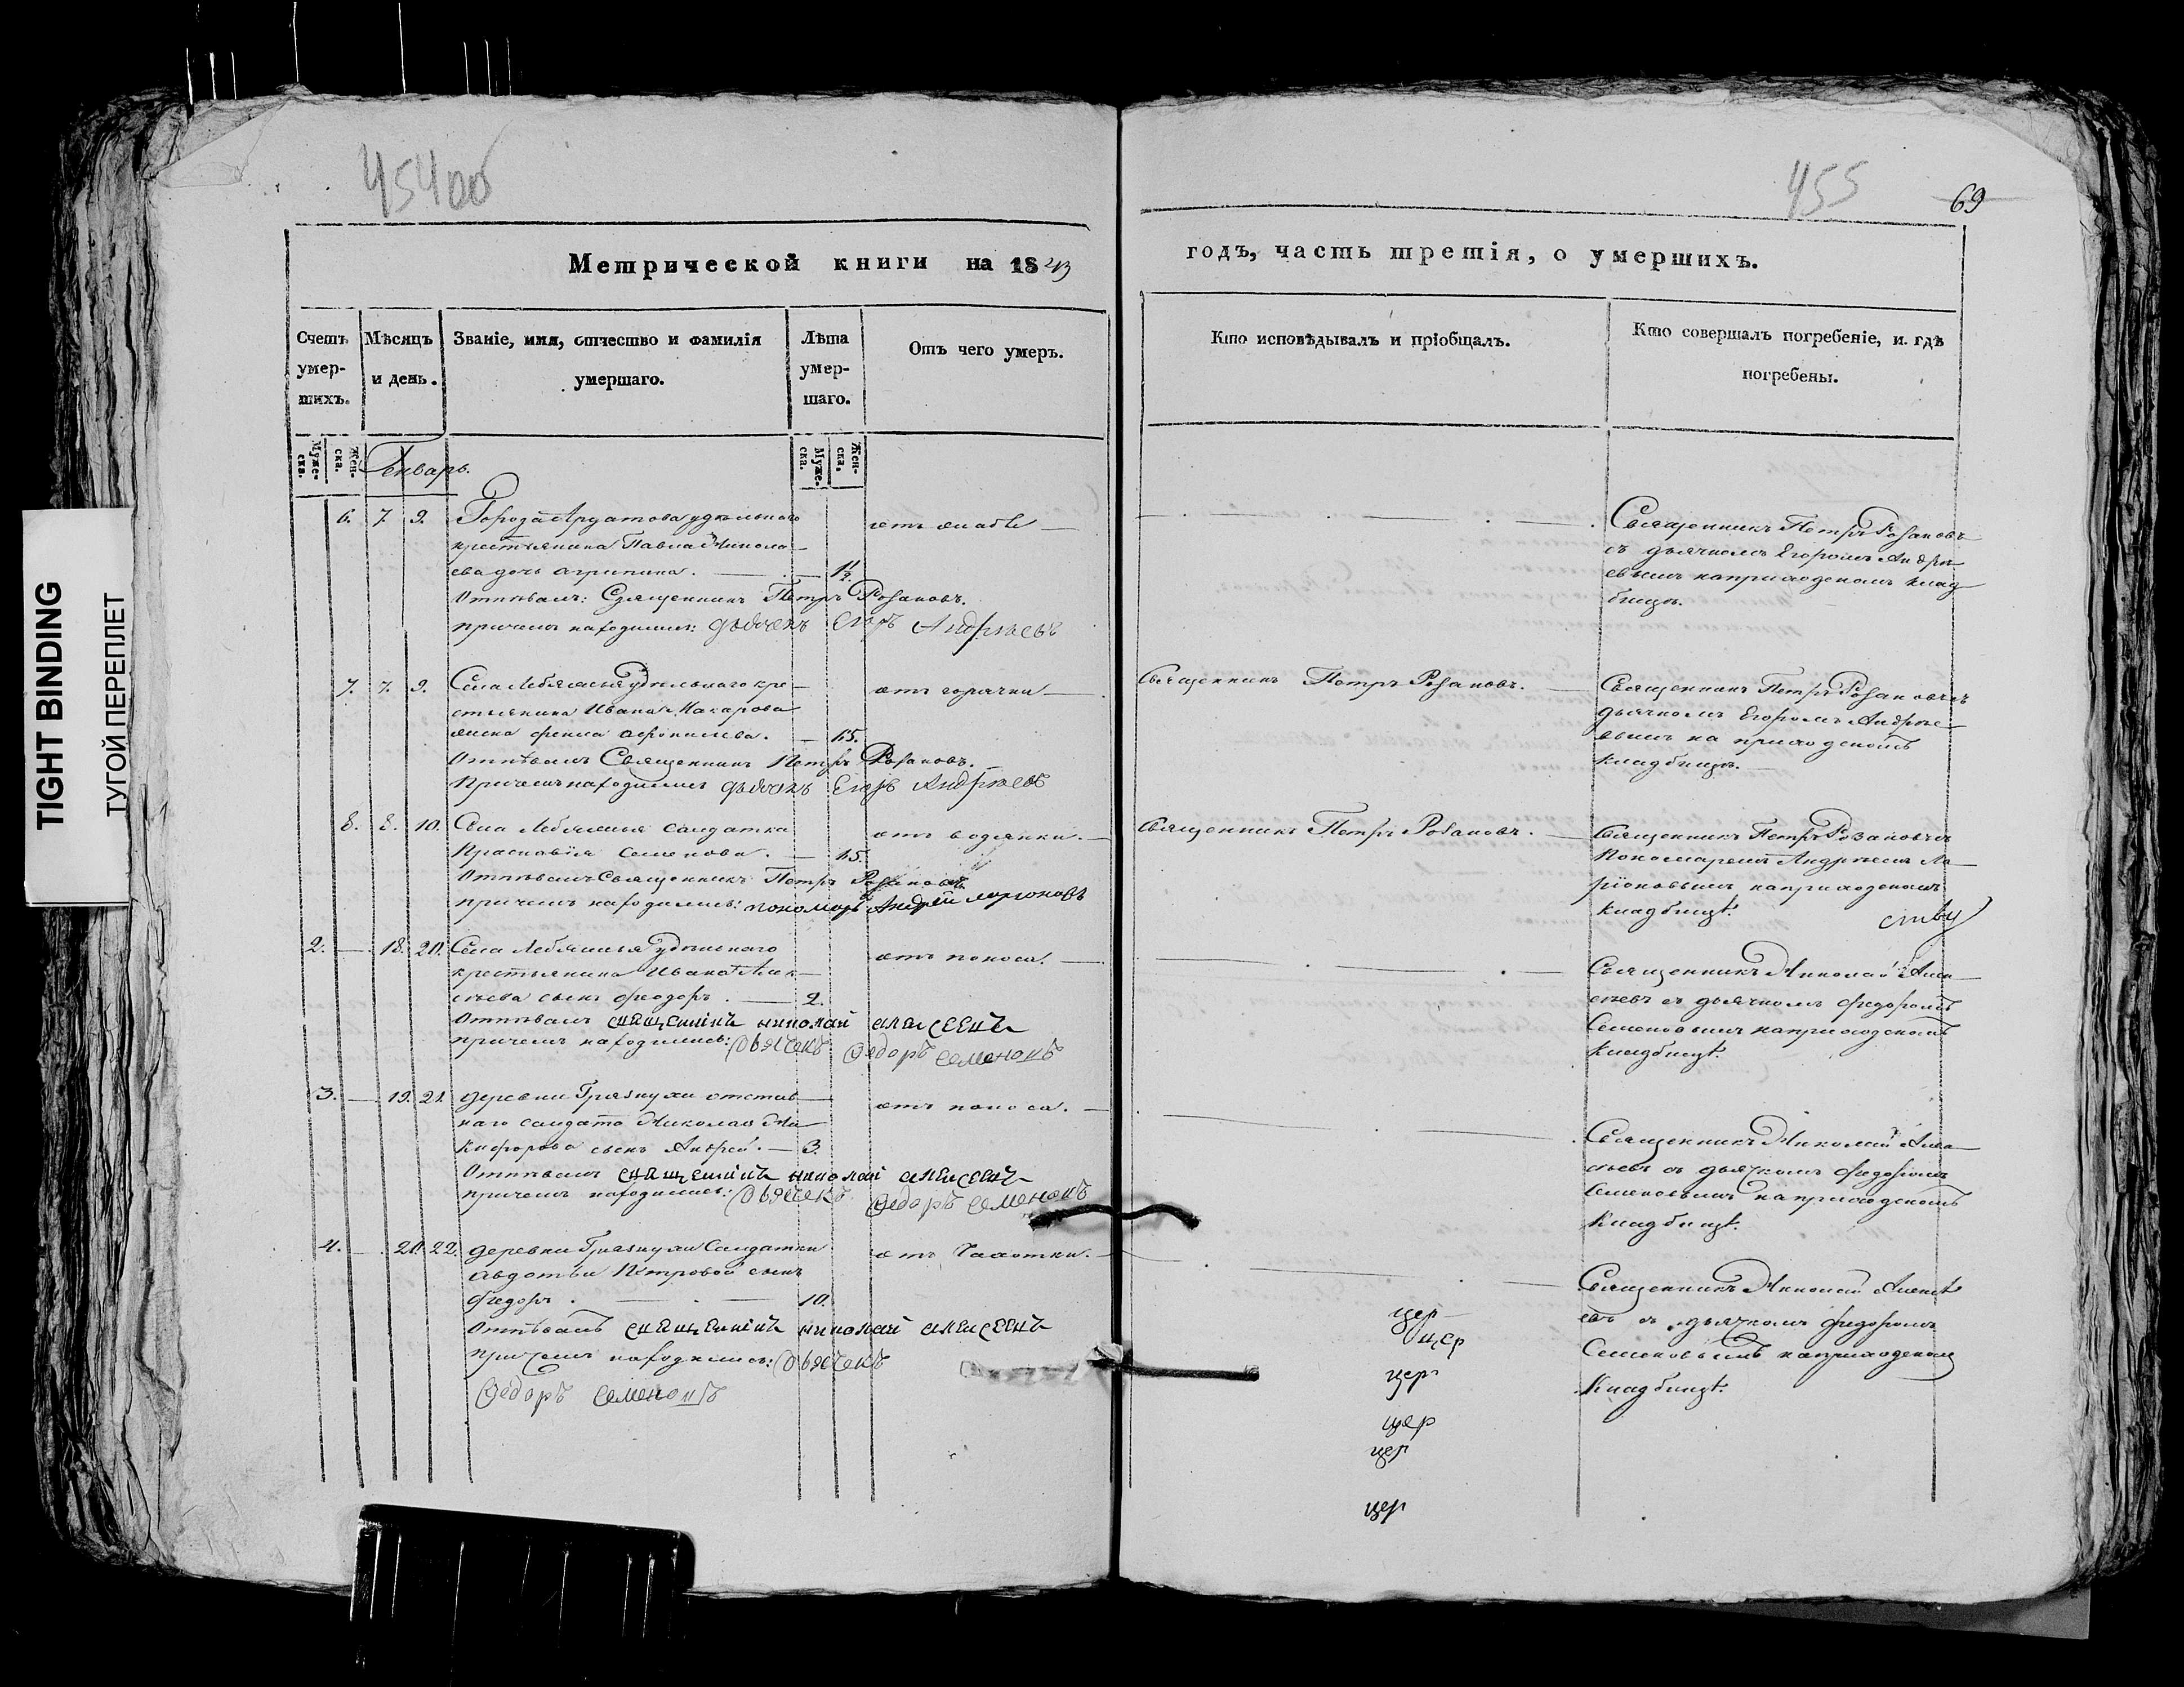 TIGHT BINDING
ТУГОЙ ПЕРЕПЛЕТ
45400
455
69
Метрической книги на 1843
годъ, часть третія, о умершихъ.
Счетъ умер-шихъ.
Мѣсяцъ и день.
Званіе, имя, отчество и фамилія умершаго.
Лѣта умер-шаго.
Отъ чего умеръ.
Кто исповѣдывалъ и пріобщалъ.
Кто совершалъ погребеніе, и гдѣ погребены.
Муже-ска.
Жен-ска.
Генварь.
Муже-ска.
Жен-ска.
6. 7. 9. Города Ардатова удѣльнаго
крестьянина Павла Никола-
ева дочь Агрипина.
Отпѣвалъ: Священникъ Петръ Розановъ.
Причемъ находились: дьячекъ Егоръ Андрѣевъ
Священникъ Петръ Розановъ
съ дьячкомъ Егоромъ Андрѣ-
евымъ на приходскомъ клад-
бищѣ.
7. 7. 9. Села Лебяжья удѣльнаго кре-
стьянина Ивана Макарова
жена
отъ горячки
Отпѣвалъ Священникъ Петръ Розановъ.
Причемъ находились дьячекъ Егоръ Андрѣевъ
Священникъ Петръ Розановъ.
Священникъ Петръ Розановъ съ
дьячкомъ Егоромъ Андрѣе-
вымъ на приходскомъ
кладбищѣ.
8. 8. 10. Села Лебяжья салдатка
Праскавія Семенова.
отъ водянки.
Отпѣвалъ Священникъ Петръ Розановъ
причемъ находились: пономарь Андрей Ларионовъ
Священникъ Петръ Розановъ.
Священникъ Петръ Розановъ съ
Пономаремъ Андрѣемъ Ла-
ріоновымъ на приходскомъ
кладбищѣ.
2. 18. 20. Села Лебяжья удѣльнаго
крестьянина Ивана Алек-
сѣева сынъ Феодоръ. 2.
отъ поноса.
Отпѣвалъ священникъ николай алексеевъ
причемъ находились: дьячекъ Федоръ Семеновъ
Священникъ Николай Алек-
сѣевъ съ дьячкомъ Федоромъ
Семеновымъ на приходскомъ
кладбищѣ.
3. 19. 21. деревни Грязнухи отстав-
наго салдата Николая Ни-
кифорова сынъ Андрей. 3.
отъ поноса.
Отпѣвалъ священникъ николай алексеевъ
причемъ находились: дьячекъ Федоръ Семеновъ
Священникъ Николай Алек-
сѣевъ съ дьячкомъ Федоромъ
Семеновымъ на приходскомъ
кладбищѣ.
4. 20. 22. деревни Грязнухи Салдатки
Авдотьи Петровой сынъ
Федоръ. 10.
отъ Чахотки.
Отпѣвалъ священникъ николай алексеевъ
причемъ находились: дьячекъ
Федоръ Семеновъ
Священникъ Николай Алексѣ
евъ съ дьячкомъ Федоромъ
Семеновымъ на приходском
кладбищѣ.
цер
цер
цер
цер
цер
цер